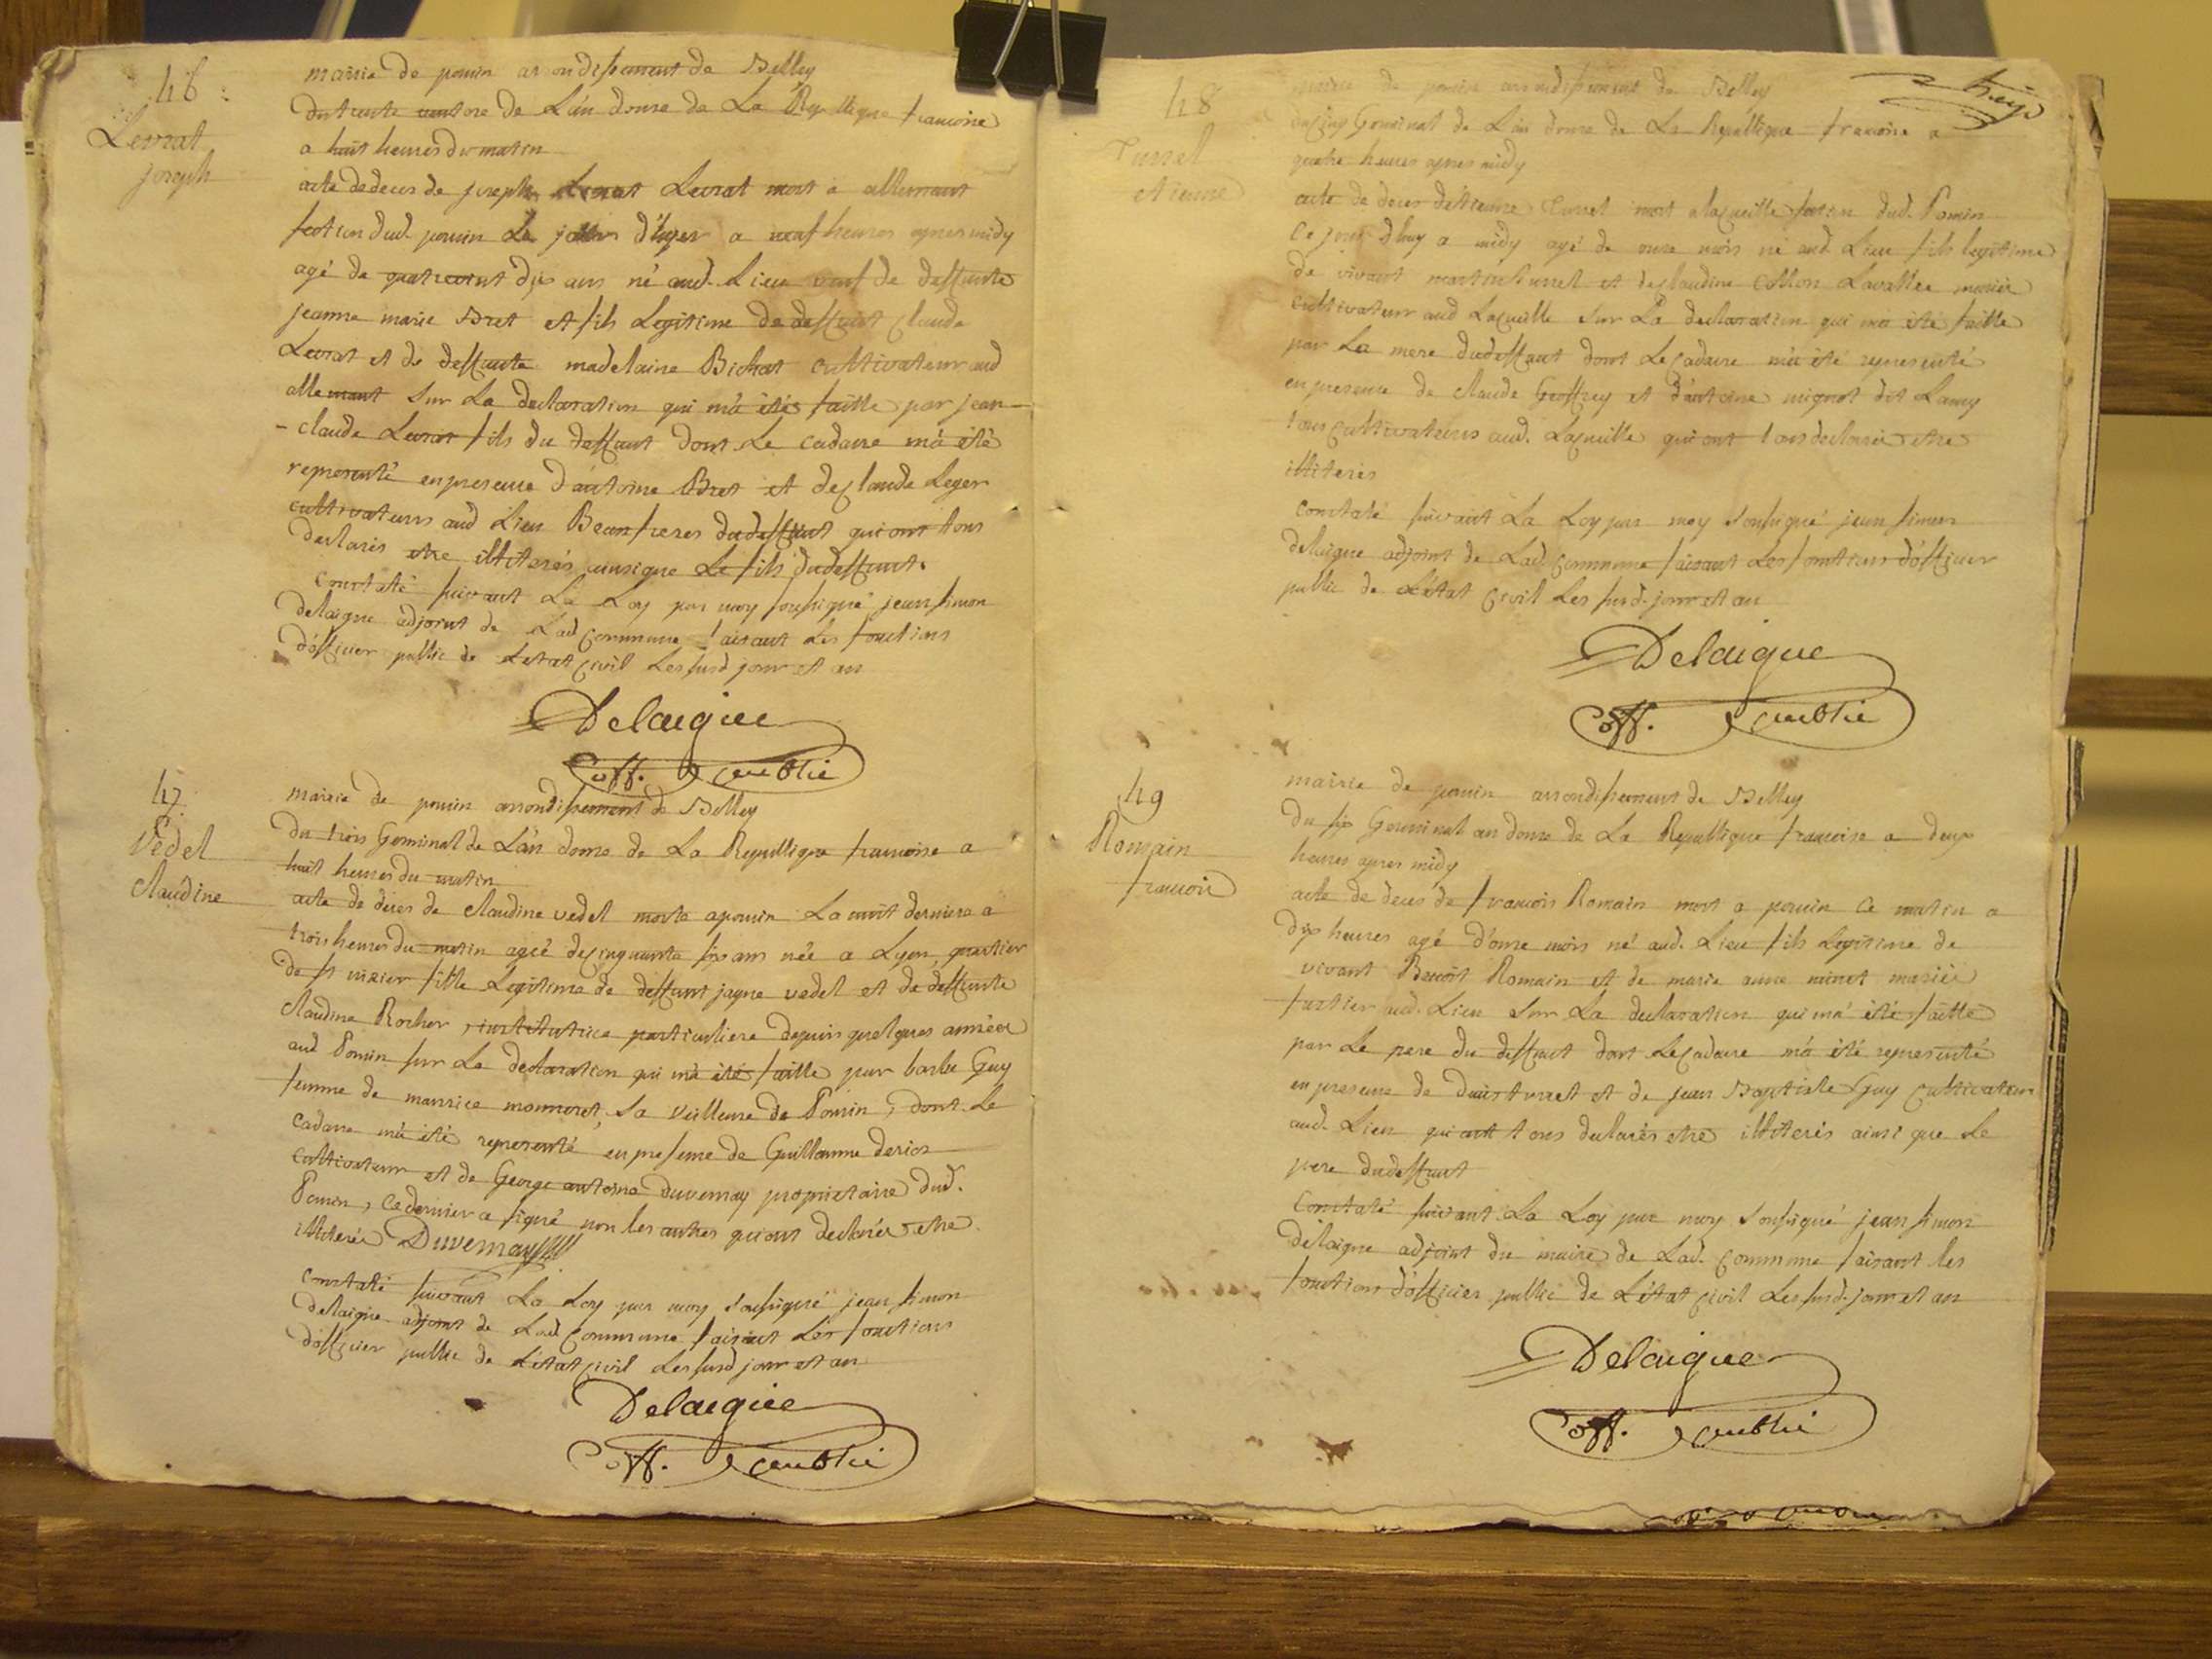 46
Levrat
joseph
mairie de pouin arrondissement de Belley
du trente ventose de L'an douze de La Republique francoise
a huit heures du matin
acte de deces de joseph Levrat mort a allemant
section dud. pouin Le jour d'hyer a neuf heures apres midy
agé de quatrevint dix ans né aud. Lieu veuf de deffunte
jeanne marie Bret et fils Legitime de deffunt claude
Levrat et de deffunte madelaine Bichat cultivateur aud
allemant sur La declaration qui m'a été faitte par jean
-claude Levrat fils du deffunt dont Le cadavre m'a été
representé en presence d'antoine Bret et de claude Leger
cultivateurs aud Lieu Beaufreres dudeffunt qui ont tous
declarés etre illiterés ainsique Le fils dudeffunt.
Constaté suivant La Loy par moy soussigné jean simon
delaigue adjoint de Lad commune faisant Les fonctions
d'officier public de Letat civil Les susd jour et an
Delaigue
off. public
47
Vedel
Claudine
mairie de pouin arrondissement de Belley
du trois Germinal de L'an douze de La Republique francoise a
huit heures du matin
acte de deces de claudine vedel morte a pouin La nuit derniere a
trois heures du matin agée de cinquante six ans née a Lyon, quartier
de st nizier fille Legitime de deffunt jaque vedel et de deffunte
claudine Rocher, institutrice particuliere depuis quelques années
aud Pouin sur La declaration qui m'a été faitte par barbe Guy
femme de maurice monneret, sa veilleuse de Pouin, dont Le
cadavre m'a été representé en presence de Guillaume derios
cultivateur et de George antoine Duvernay proprietaire dud.
Pouin, ce dernier a signé non les autres qui ont declarés etre
illiterés Duvernay
Constaté suivant La Loy par moy soussigné jean simon
delaigue adjoint de Lad commune faisant Les fonctions
d'officier public de L'état civil Les susd jour et an
Delaigue
off. public
48
Turrel
etienne
mairie de pouin arrondissement de Belley
du cinq Germinal de L'an douze de La Republique francoise a
quatre heures apres midy
acte de deces d'étienne Turrel mort a lacueille section dud. Pouin
ce jour d'huy a midy agé de onze mois né aud Lieu fils legitime
de vivant martin turrel et de claudine Lavallee mariés
cultivateur aud Lacueille sur La declaration qui m'a été faitte
par La mere dudeffunt dont Le cadavre m'a été representé
en presence de claude Geoffrey et d'antoine mignot dit Lamy
tous cultivateurs aud. Lacueille qui ont tous declarés etre
illiterés
Constaté suivant La Loy par moy soussigné jean simon
delaigue adjoint de Lad commune faisant Les fonctions d'officier
public de L'état civil Les susd. jour et an
Delaigue
off. public
49
Romain
francois
mairie de pouin arrondissement de Belley
Du six Germinal an douze de La Republique francoise a deux
heures apres midy
acte de deces de francois Romain mort a pouin ce matin a
dix heures agé d'onze mois né aud. Lieu fils Legitime de
vivant Benoit Romain et de marie anne minet mariés
aud. Lieu sur La declaration qui m'a été faitte
par Le pere du deffunt dont Le cadavre m'a été representé
en presence de turrel et de jean Baptiste Guy cultivateurs
aud. Lieu qui ont tous declarés etre illiterés ainsi que Le
pere dudeffunt
Constaté suivant La Loy par moy soussigné jean simon
delaigue adjoint du maire de Lad. commune faisant les
fonction d'officier public de L'état civil Les susd. jour et an
Delaigue
off. public